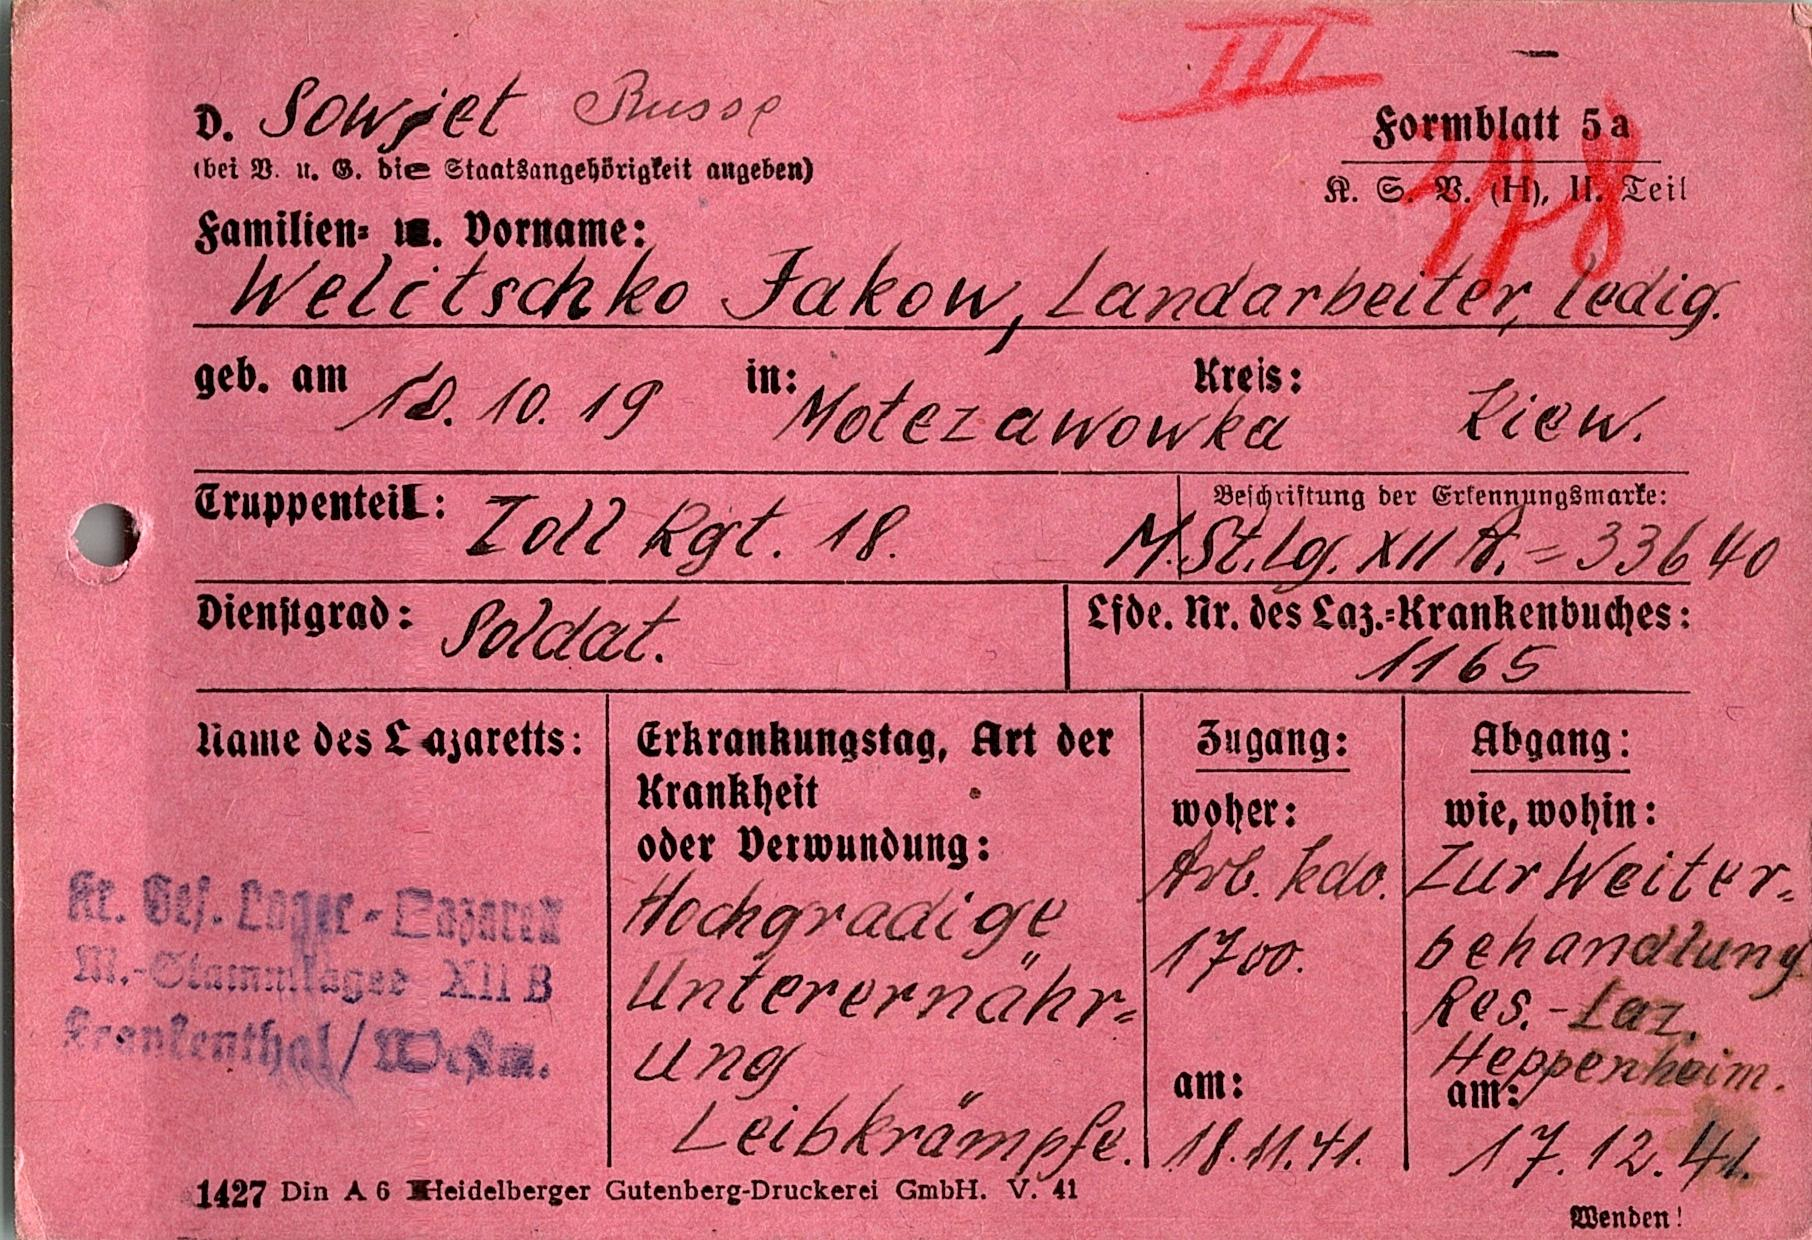 III
D. Sowjet Russe
Formblatt 5a
(bei V. u. G. die Staatsangehörigkeit angeben)
K. S. V. (H), II. Teil
Familien- u. Vorname:
Welitschko Jakow, Landarbeiter, ledig.
geb. am 10.19 in: Motezawowka Kreis: Kiew.
Truppenteil: Zoll Rgt. 18.
Beschriftung der Erkennungsmarke:
M.St.Lg. XII = 33640
Dienstgrad: Soldat.
Lfde. Nr. des Laz.-Krankenbuches:
1165
Name des Lazaretts:
Kr. Gef. Lager-Lazarett
M.-Stammlager XII B
Frankenthal/
Erkrankungstag, Art der
Krankheit
oder Verwundung:
Hochgradige
Unterernähr-
ung
Leibkrämpfe.
Zugang:
woher:
Arb. Kdo.
1700.
am:
18.11.41.
Abgang:
wie, wohin:
Zur Weiter-
behandlung
Res.-Laz.
Heppenheim.
am:
17.12.41.
1427 Din A 6 Heidelberger Gutenberg-Druckerei GmbH. V. 41
Wenden!